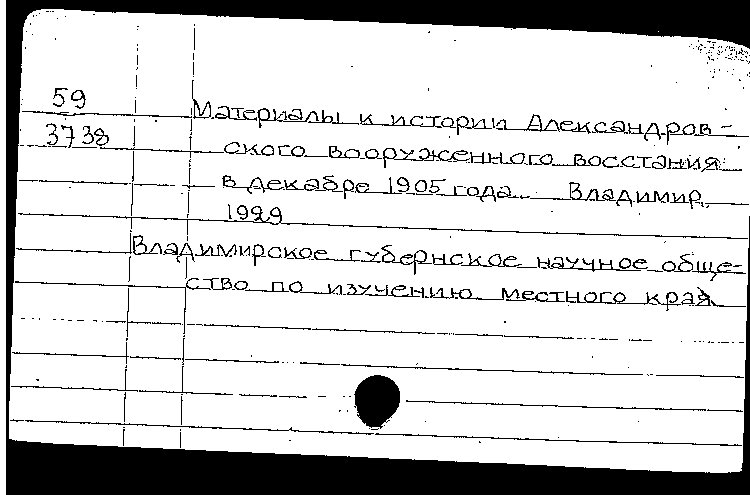 59
3738
Материалы к истории Александров-
ского вооруженного восстания
в декабре 1905 года. Владимир,
1929
Владимирское губернское научное обще-
ство по изучению местного края